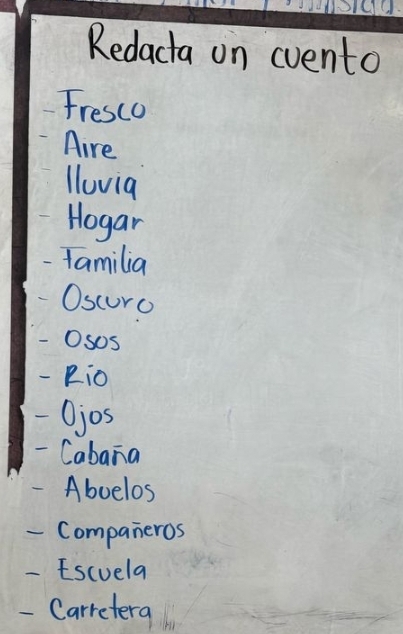 Redacta un cuento
- Fresco
- Aire
- lluvia
- Hogar
- Familia
- Oscuro
- Osos
- Río
- Ojos
- Cabaña
- Abuelos
- Compañeros
- Escuela
- Carretera